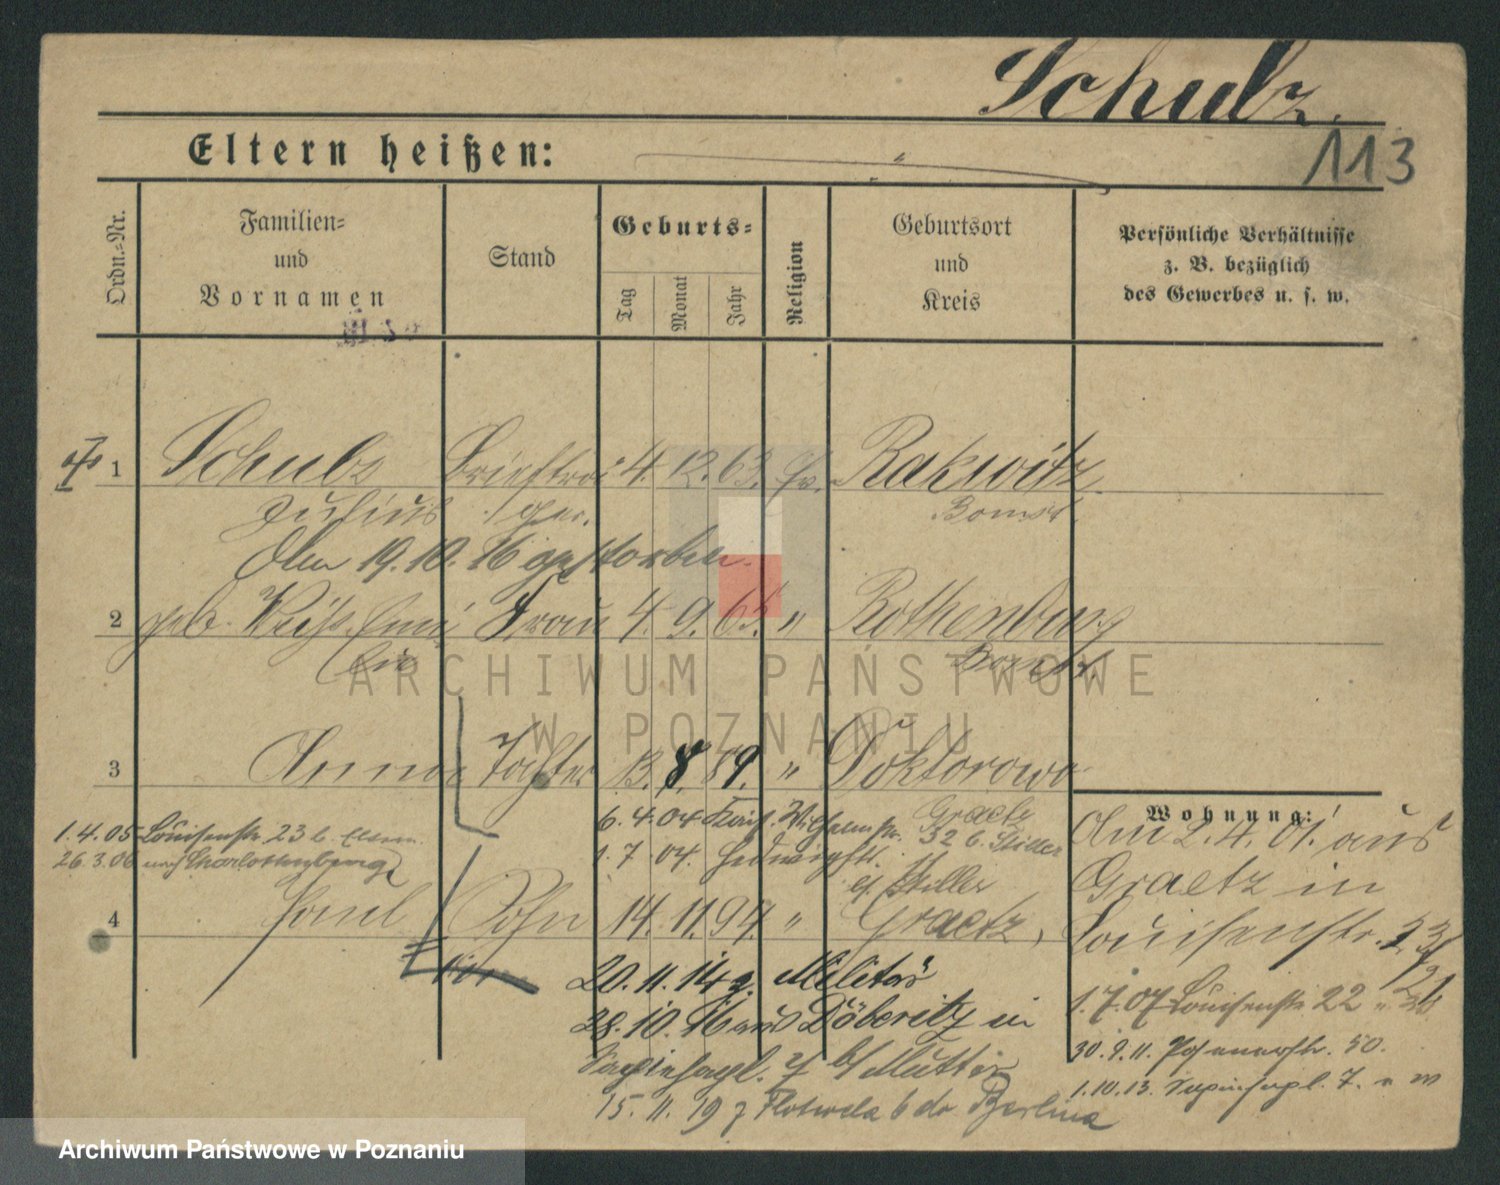 Schulz.
113
Eltern heißen:
Ordn.-Nr.
Familien-
und
Vornamen
Stand
Geburts-
Tag
Monat
Jahr
Religion
Geburtsort
und
Kreis
Persönliche Verhältnisse
z. B. bezüglich
des Gewerbes u. s. w.
1 Schulz Briefträ 4. 12. 63. Ev. Rakwitz
Julius ger. Bomst.
Am 19. 10. 16 gestorben.
2 geb. Weiß Frau 4. 9. 65. " Rothenburg
Bomst.
ARCHIWUM PAŃSTWOWE
W POZNANIU
3 Anna Tochter 13. 8. 89. " Doktorowo
Graetz
6. 4. 04 Wilhelmstr. 32 b. Stiller
1. 7. 04. Hedwigstr.
b/ Stiller
1.4.05 Louisenstr. 23 b. Eltern
26.3.06 nach Charlottenburg
4 Paul Sohn 14. 11. 94. " Graetz,
20. 11. 14 z. Militär
28. 10. 16 aus Döberitz in
7 b/ Mutter
15. 11. 19 Berlin
Wohnung:
Am 2. 4. 01. aus
Graetz in
Louisenstr. 23
1. 7. 07 Louisenstr. 22
30. 9. 11. Posenerstr. 50.
1. 10. 13. 7.
Archiwum Państwowe w Poznaniu